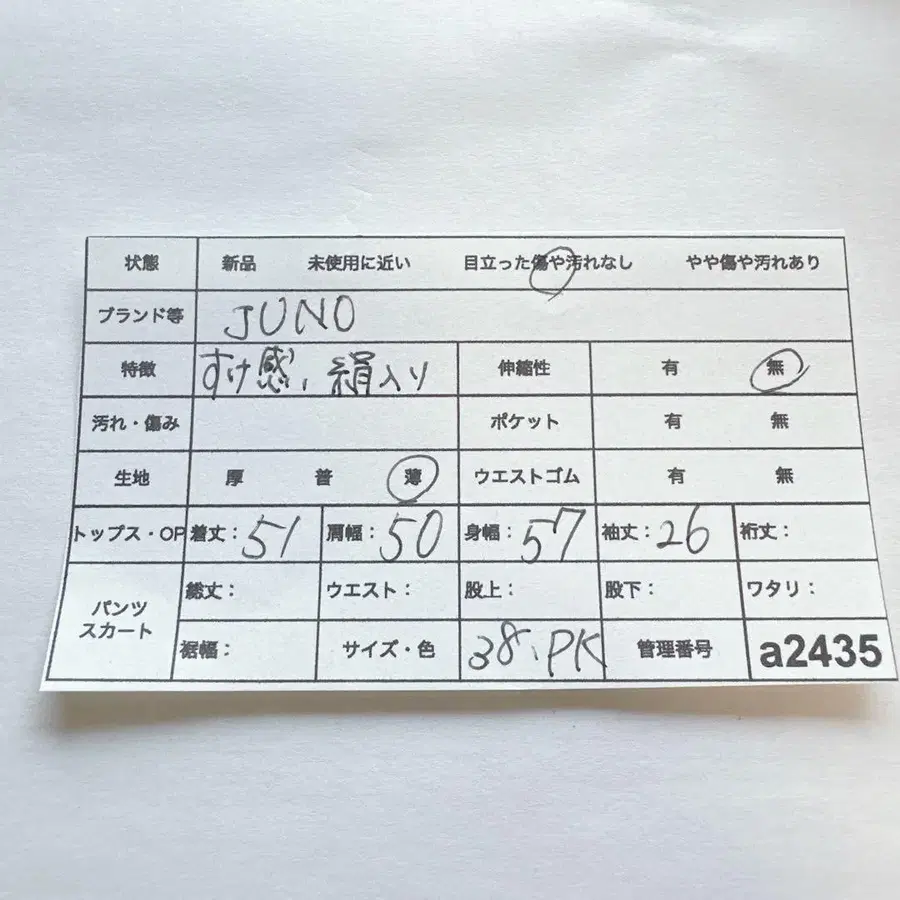 状態 新品 未使用に近い 目立った傷や汚れなし やや傷や汚れあり
ブランド等 JUNO
特徴 すけ感、絹入り 伸縮性 有 無
汚れ・傷み ポケット 有 無
生地 厚 普 薄 ウエストゴム 有 無
トップス・OP 着丈：51 肩幅：50 身幅：57 袖丈：26 裄丈：
パンツ スカート 総丈： ウエスト： 股上： 股下： ワタリ：
裾幅： サイズ・色 38、PK 管理番号 a2435